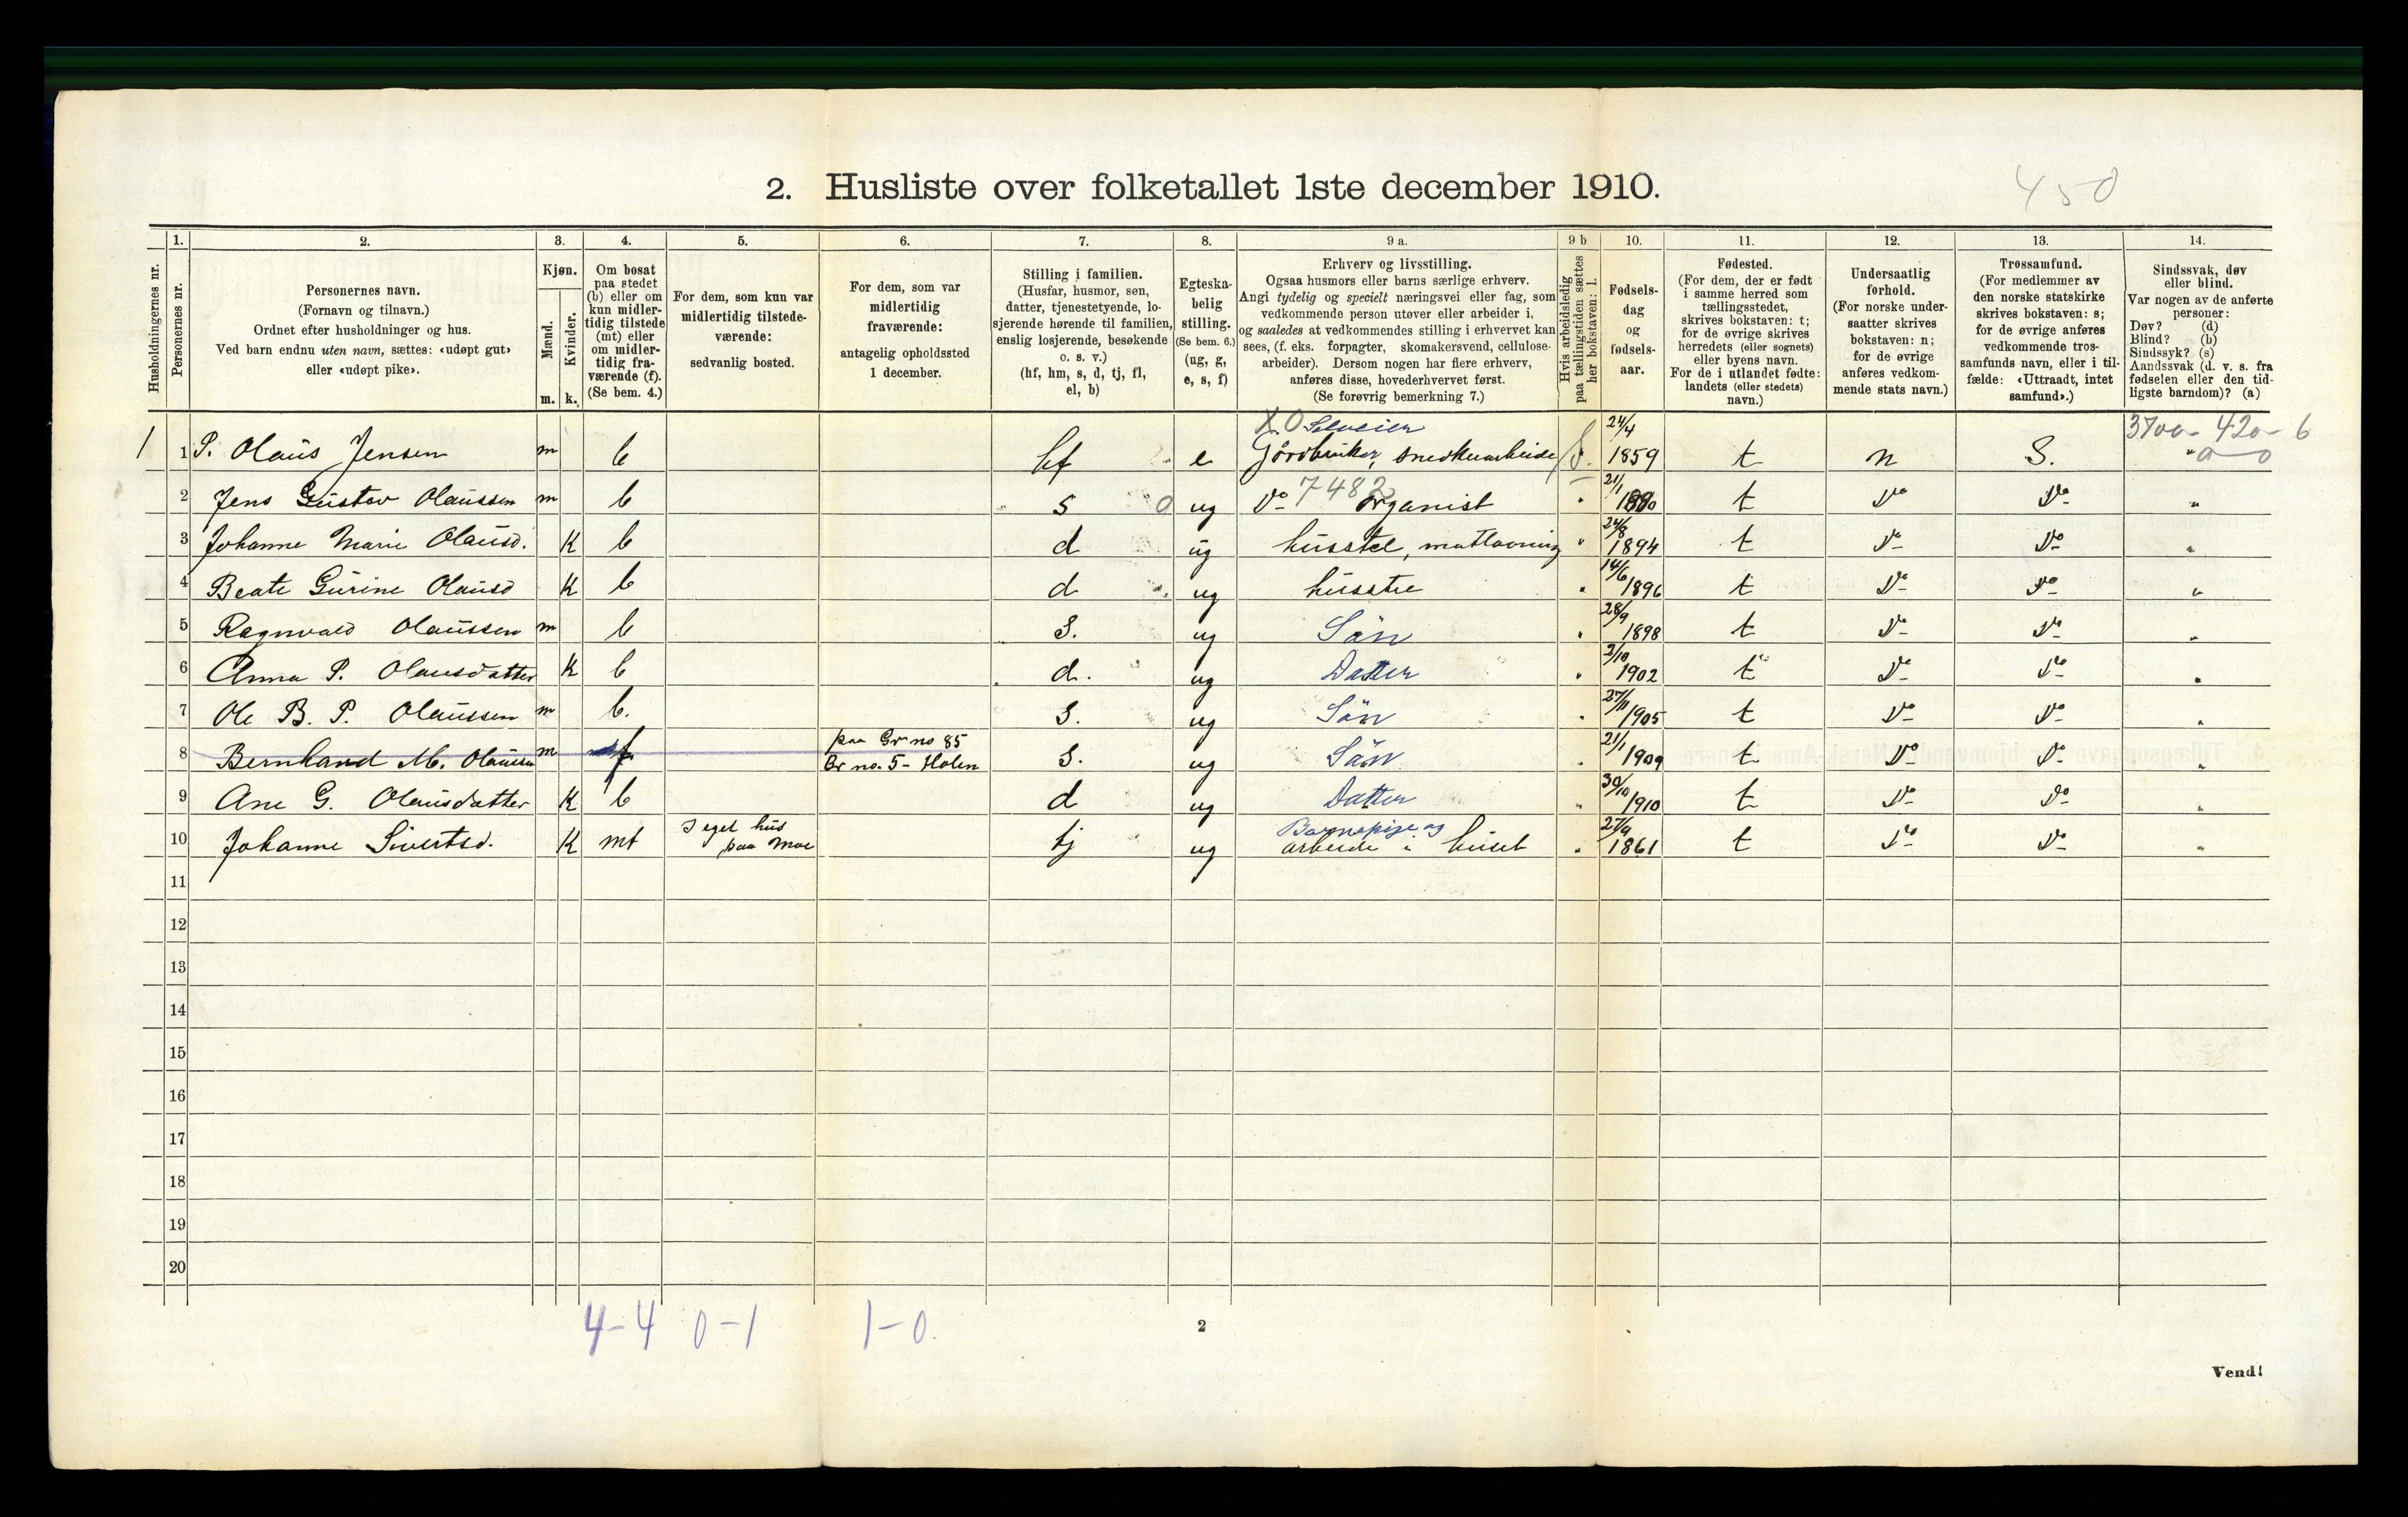 2. Husliste over folketallet 1ste december 1910.
450
Husholdningernes nr.
1.
Personernes nr.
2.
Personernes navn.
(Fornavn og tilnavn.)
Ordnet efter husholdninger og hus.
Ved barn endnu uten navn, sættes: «udøpt gut»
eller «udøpt pike».
3.
Kjøn.
Mænd.
Kvinder.
m. k.
4.
Om bosat
paa stedet
(b) eller om
kun midler-
tidig tilstede
(mt) eller
om midler-
tidig fra-
værende (f).
(Se bem. 4.)
5.
For dem, som kun var
midlertidig tilstede-
værende:
sedvanlig bosted.
6.
For dem, som var
midlertidig
fraværende:
antagelig opholdssted
1 december.
7.
Stilling i familien.
(Husfar, husmor, søn,
datter, tjenestetyende, lo-
sjerende hørende til familien,
enslig losjerende, besøkende
o. s. v.)
(hf, hm, s, d, tj, fl,
el, b)
8.
Egteska-
belig
stilling.
(Se bem. 6.)
(ug, g,
e, s, f)
9 a.
Erhverv og livsstilling.
Ogsaa husmors eller barns særlige erhverv.
Angi tydelig og specielt næringsvei eller fag, som
vedkommende person utøver eller arbeider i,
og saaledes at vedkommendes stilling i erhvervet kan
sees, (f. eks. forpagter, skomakersvend, cellulose-
arbeider). Dersom nogen har flere erhverv,
anføres disse, hovederhvervet først.
(Se forøvrig bemerkning 7.)
9 b
Hvis arbeidsledig
paa tællingstiden sættes
her bokstaven: l.
10.
Fødsels-
dag
og
fødsels-
aar.
11.
Fødested.
(For dem, der er født
i samme herred som
tællingsstedet,
skrives bokstaven: t;
for de øvrige skrives
herredets (eller sognets)
eller byens navn.
For de i utlandet fødte:
landets (eller stedets)
navn.)
12.
Undersaatlig
forhold.
(For norske under-
saatter skrives
bokstaven: n;
for de øvrige
anføres vedkom-
mende stats navn.)
13.
Trossamfund.
(For medlemmer av
den norske statskirke
skrives bokstaven: s;
for de øvrige anføres
vedkommende tros-
samfunds navn, eller i til-
fælde: «Uttraadt, intet
samfund».)
14.
Sindssvak, døv
eller blind.
Var nogen av de anførte
personer:
Døv? (d)
Blind? (b)
Sindssyk? (s)
Aandssvak (d. v. s. fra
fødselen eller den tid-
ligste barndom)? (a)
XO Selveier 24/4 3700- 420- 6
1 1 P. Olaus Jensen m b hf e Gårdbruker, snedkerarbeide 1859 t n S. "
2 Jens Gustav Olaussen m b s 0 ug Do 7482 organist " 21/1 1880 t Do Do "
3 Johanne Marie Olausd. K b d ug husstel, matlavning " 24/8 1894 t Do Do "
4 Beate Gurine Olausd K b d ug husstel " 14/6 1896 t Do Do "
5 Ragnvald Olaussen m b S. ug Sön " 28/9 1898 t Do Do "
6 Anna P. Olausdatter K b d. ug Datter " 2/10 1902 t Do Do "
7 Ole B. P. Olaussen m b. S. ug Sön " 27/11 1905 t Do Do "
8 Bernhard M. Olaussen m f paa Gr no 85
Br no. 5 - Holen S. ug Sön " 21/1 1909 t Do Do "
9 Ane G. Olausdatter K b d ug Datter " 30/10 1910 t Do Do "
10 Johanne Sivertsd. K mt I eget hus
paa Moe tj ug Barnepige og
arbeide i huset " 27/9 1861 t Do Do "
11
12
13
14
15
16
17
18
19
20
4-4 0-1 1-0.
2
Vend!